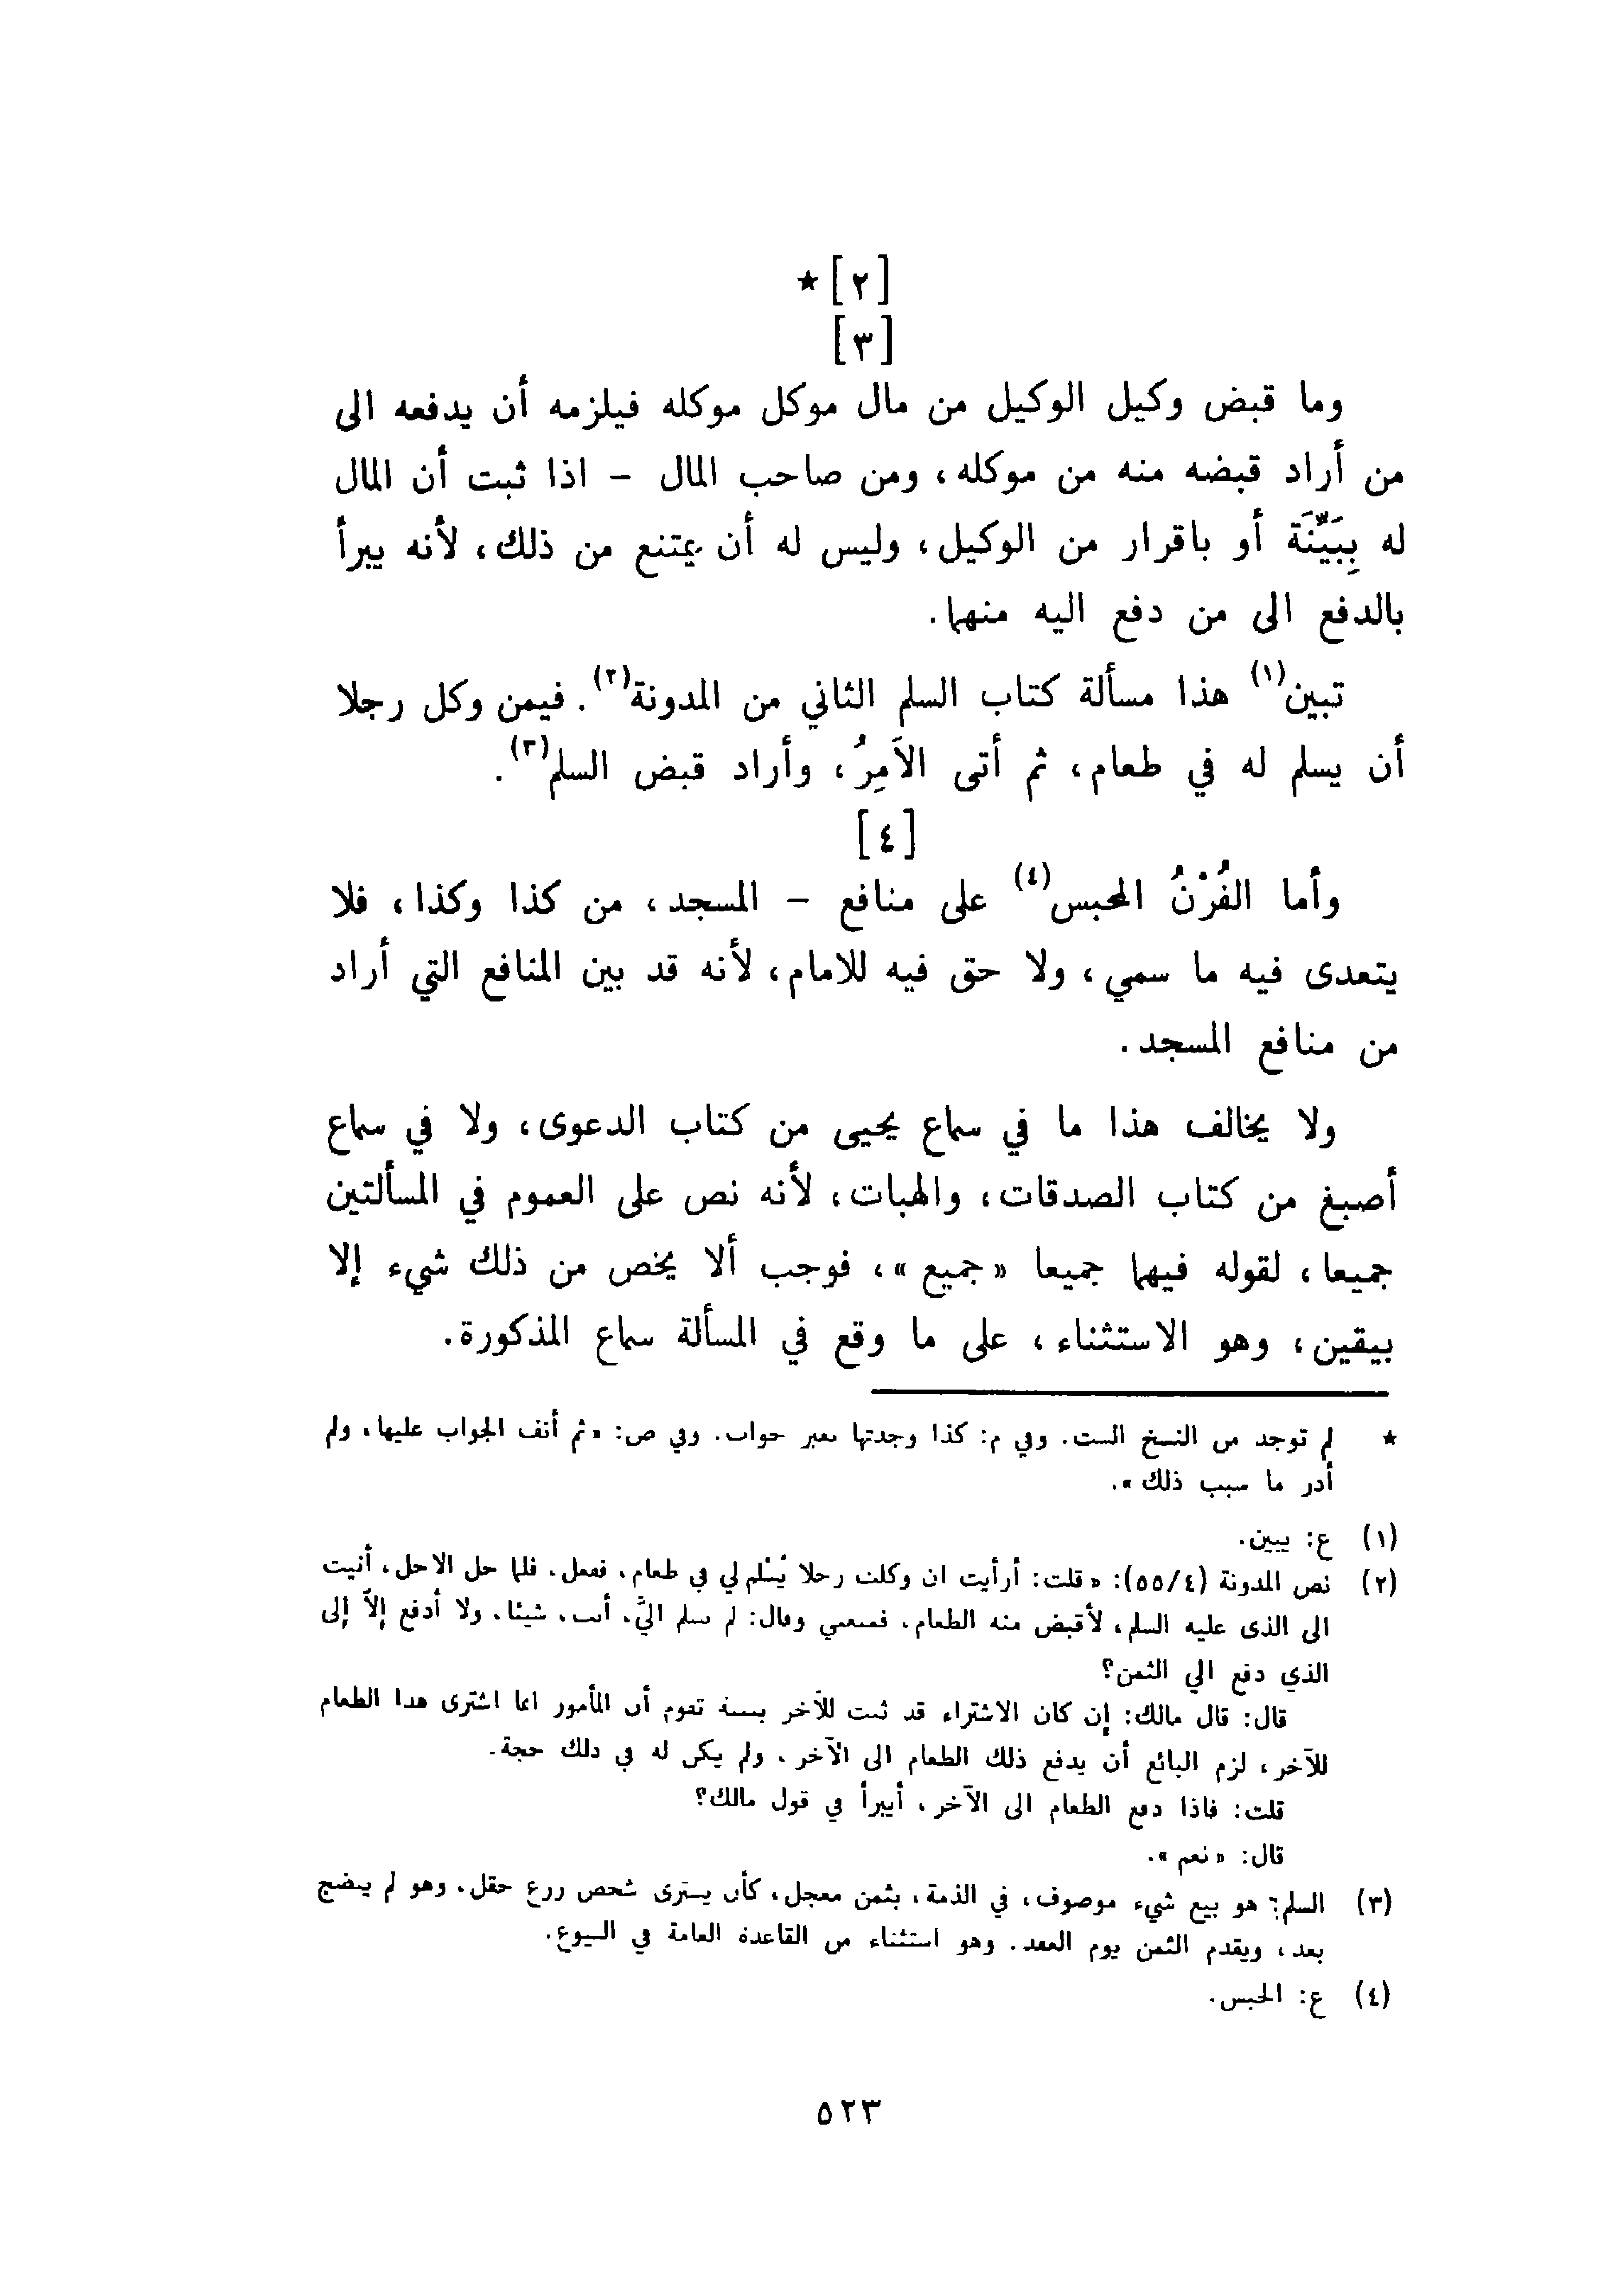 [٢]★
[٣]
وما قبض وكيل الوكيل من مال موكل موكله فيلزمه أن يدفعه الى
من أراد قبضه منه من موكله، ومن صاحب المال - اذا ثبت أن المال
له بِبَيِّنَة أو باقرار من الوكيل، وليس له أن يمتنع من ذلك، لأنه يبرأ
بالدفع الى من دفع اليه منهما.
تبين(١) هذا مسألة كتاب السلم الثاني من المدونة(٢). فيمن وكل رجلا
أن يسلم له في طعام، ثم أتى الآمِرُ، وأراد قبض السلم(٣).
[٤]
وأما الفُرْنُ المحبس(٤) على منافع - المسجد، من كذا وكذا، فلا
يتعدى فيه ما سمي، ولا حق فيه للامام، لأنه قد بين المنافع التي أراد
من منافع المسجد.
ولا يخالف هذا ما في سماع يحيى من كتاب الدعوى، ولا في سماع
أصبغ من كتاب الصدقات، والهبات، لأنه نص على العموم في المسألتين
جميعا، لقوله فيهما جميعا «جميع»، فوجب ألا يخص من ذلك شيء إلا
بيقين، وهو الاستثناء، على ما وقع في المسألة سماع المذكورة.
★ لم توجد من النسخ الست. وفي م: كذا وجدتها بغير جواب. وفي ص: «ثم أنف الجواب عليها، ولم
أدر ما سبب ذلك».
(١) ع: يبين.
(٢) نص المدونة (٥٥/٤): «قلت: أرأيت ان وكلت رجلا يُسْلم لي في طعام، ففعل، فلما حل الاجل، أتيت
الى الذى عليه السلم، لأقبض منه الطعام، فمنعني وقال: لم تسلم اليَّ، أنت، شيئا، ولا أدفع إلاَّ إلى
الذي دفع الي الثمن؟
قال: قال مالك: إن كان الاشتراء قد ثبت للآخر ببينة تقوم أن المأمور انما اشترى هذا الطعام
للآخر، لزم البائع أن يدفع ذلك الطعام الى الآخر، ولم يكن له في ذلك حجة.
قلت: فاذا دفع الطعام الى الآخر، أيبرأ في قول مالك؟
قال: «نعم».
(٣) السلم: هو بيع شيء موصوف، في الذمة، بثمن معجل، كأن يشترى شخص زرع حقل، وهو لم ينضج
بعد، ويقدم الثمن يوم العقد. وهو استثناء من القاعدة العامة في البيوع.
(٤) ع: الحبس.
٥٢٣